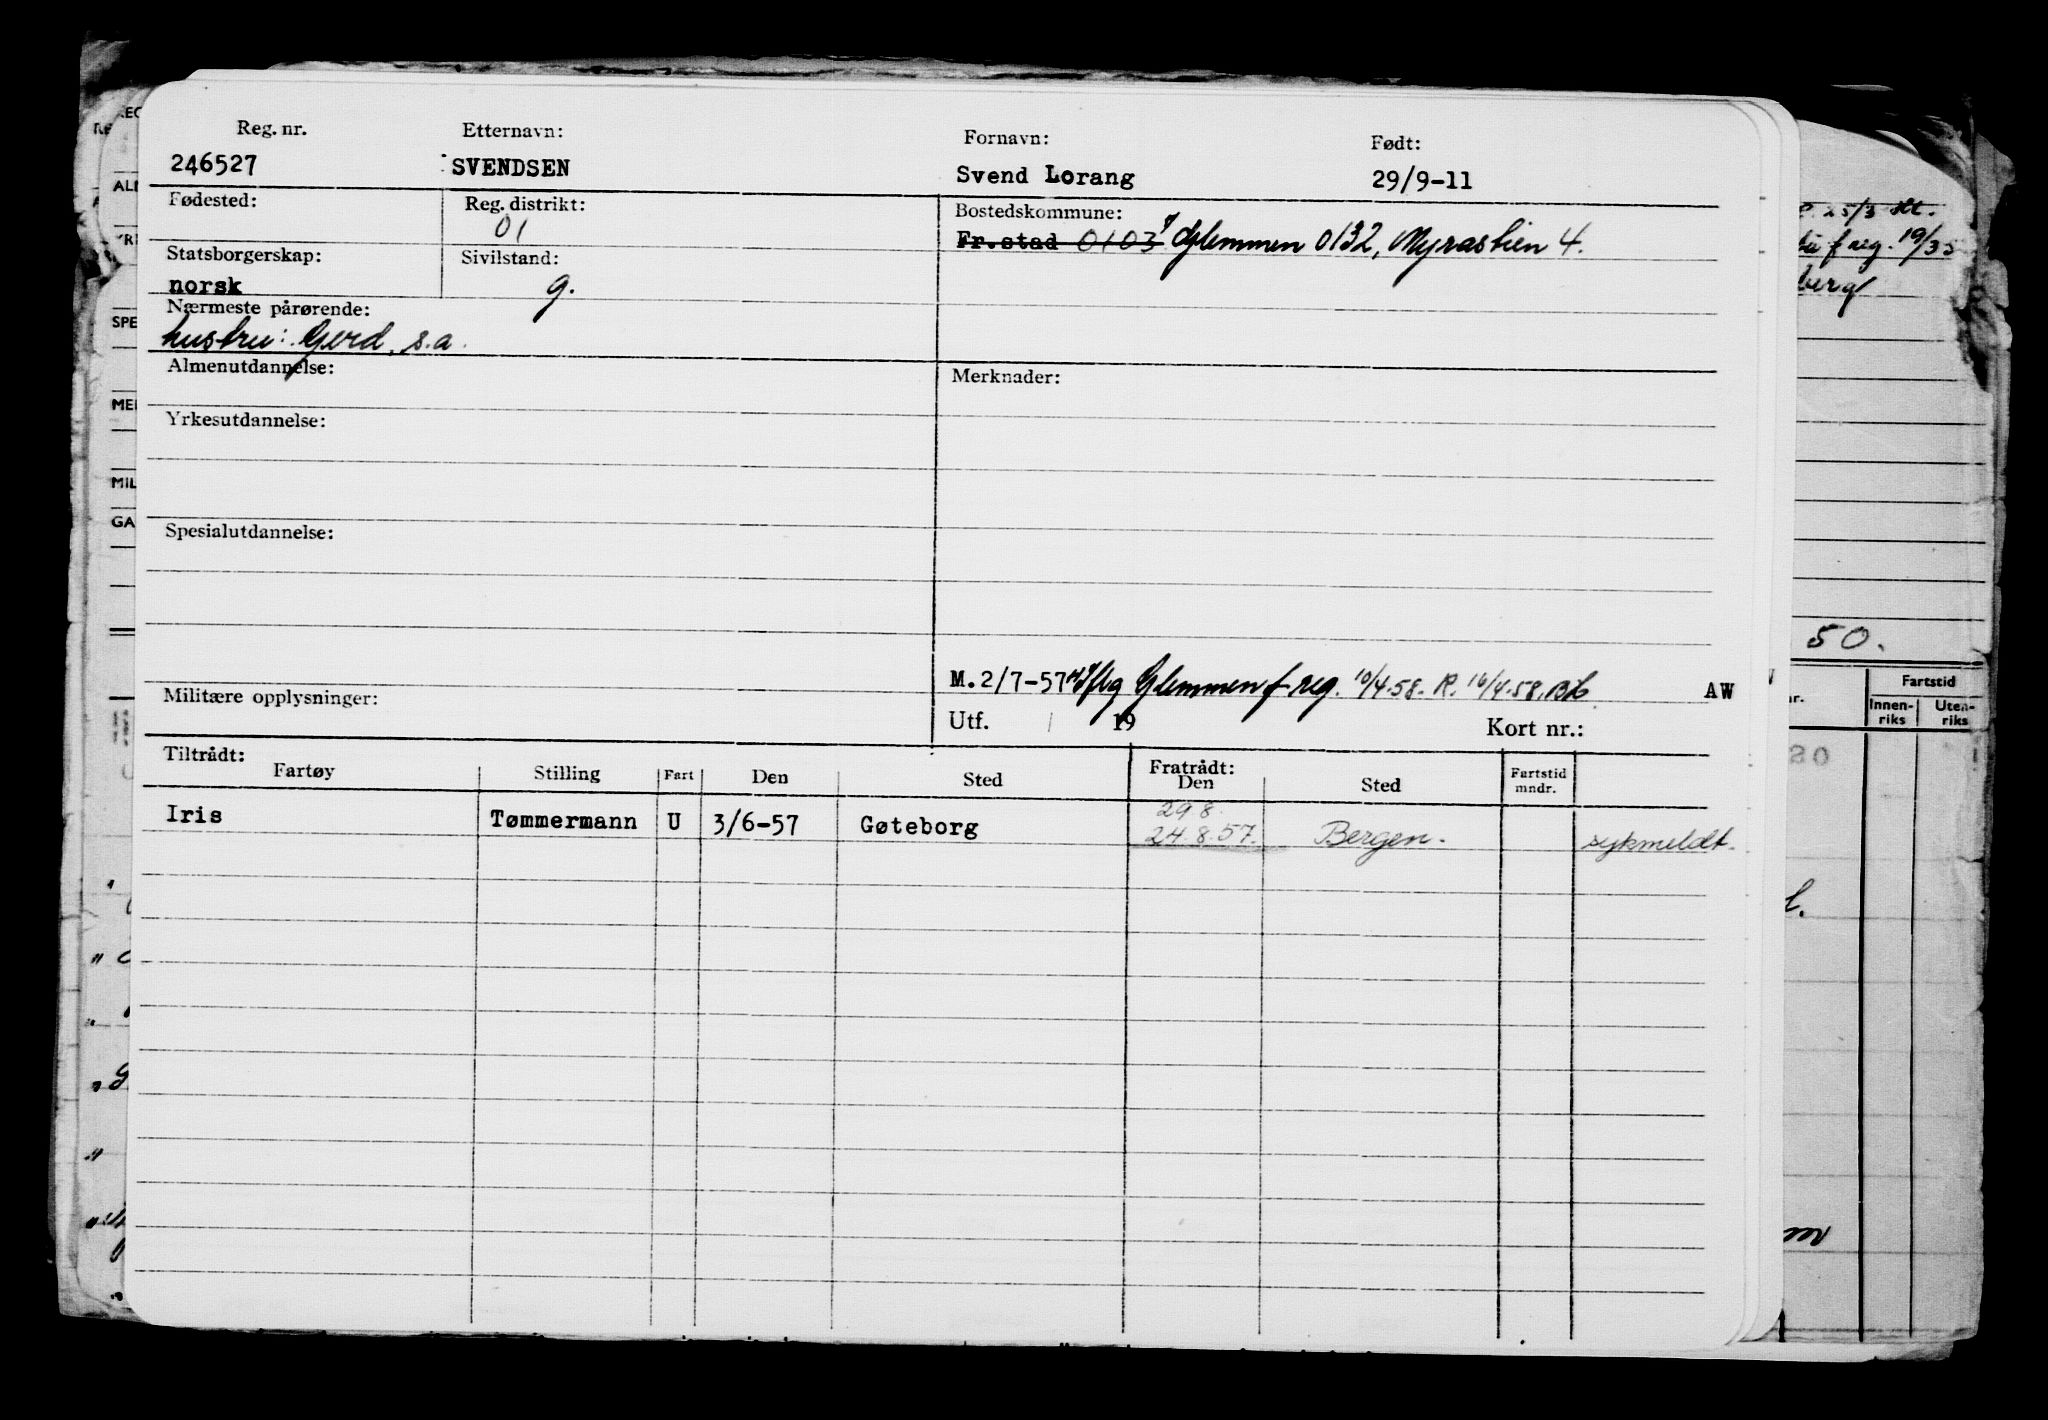 Reg. nr. Etternavn: Fornavn: Født:
246527 SVENDSEN Svend Lorang 29/9-11
Fødested: Reg. distrikt: Bostedskommune:
01 Fr.stad 0103 Glemmen 0132, Myrastien 4.
Statsborgerskap: Sivilstand:
norsk g.
Nærmeste pårørende:
hustru: Gerd, s.a.
Almenutdannelse: Merknader:
Yrkesutdannelse:
Spesialutdannelse:
M.2/7-57 iflg Glemmen f reg. 10/4-58. R. 16/4-58. AW
Militære opplysninger:
Utf. / 19 Kort nr.:
Tiltrådt: Fratrådt:
Fartøy Stilling Fart Den Sted Den Sted Fartstid mndr.
29 8.
Iris Tømmermann U 3/6-57 Gøteborg 24.8.57. Bergen. sykmeldt.
25/3
f reg. 19/3 5
berg
50.
Fartstid
Innen-riks Uten-riks